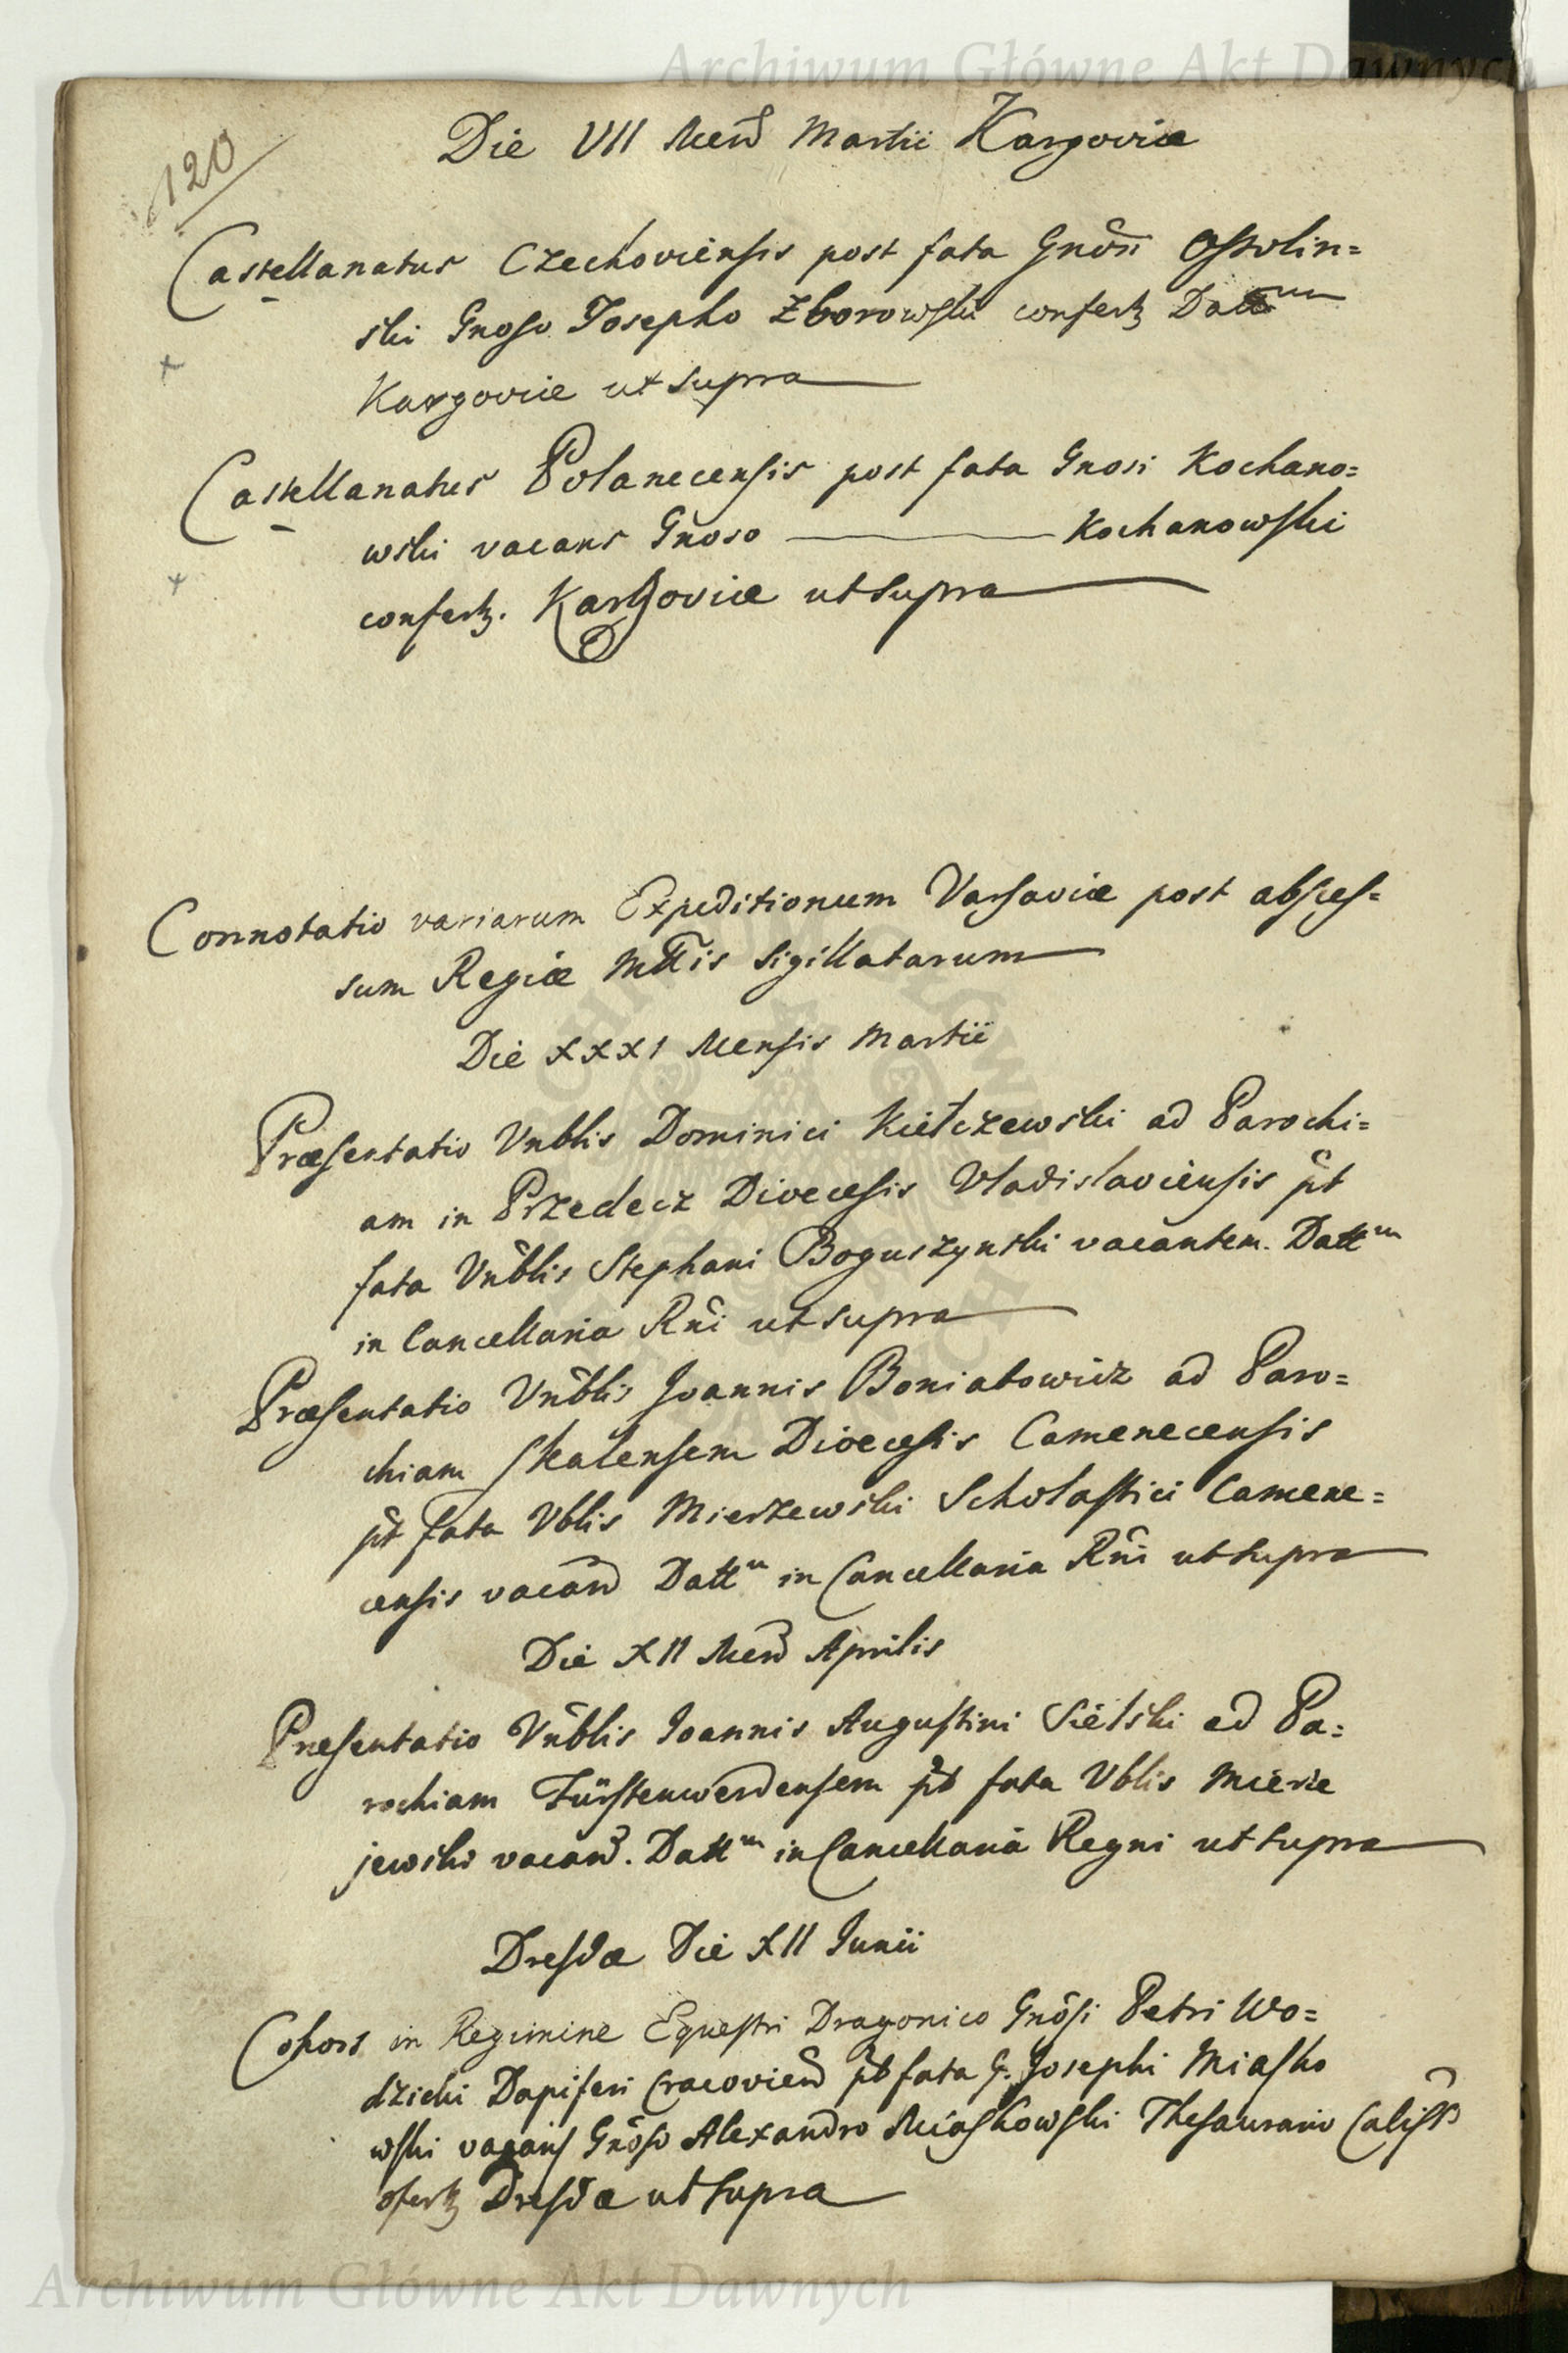 Archiwum Główne Akt Dawnych
120
Die VII Mens̃ Martii Kargoviæ
Castellanatus Czechoviensis post fata Gnõsi Ossolin=
ski Gnoso Josepho Zborowski confertz Dattum
Kargoviæ ut supra
Castellanatus Polanecensis post fata Gnosi Kochano=
wski vacans Gnõso ——— Kochanowski
confertz. Kargoviæ ut supra
Connotatio variarum Expeditionum Varsaviæ post absces=
sum Regiæ Mttis Sigillatarum
Die XXXI Mensis Martii
Præsentatio Vnblis Dominici Kiełczewski ad Parochi=
am in Przedecz Diœcesis Vladislaviensis p̃t
fata Vñblis Stephani Boguszynski vacantem. Dattm
in Cancellaria Rñi ut supra
Præsentatio Vñblis Joannis Boniatowicz ad Paro=
chiam Skalensem Diœcesis Camenecensis
p̃t fata Vblis Mierzewski Scholastici Camene=
censis vacañ Dattm in Cancellaria Rñi ut supra
Die XII Mens̃ Aprilis
Præsentatio Vñblis Joannis Augustini Sielski ad Pa=
rochiam Fürstenwerdensem p̃t fata Vblis Mierie
jewski vacañ. Dattm in Cancellaria Regni ut supra
Dresdæ Die XII Junii
Cohors in Regimine Equestri Dragonico Gnõsi Petri Wo=
dzicki Dapiferi Cracovieñ p̃t fata G. Josephi Miasko
wski vacans Gnõso Alexandro Miaskowski Thesaurario Caliss̃
ofertz Dresdæ ut supra
Archiwum Główne Akt Dawnych